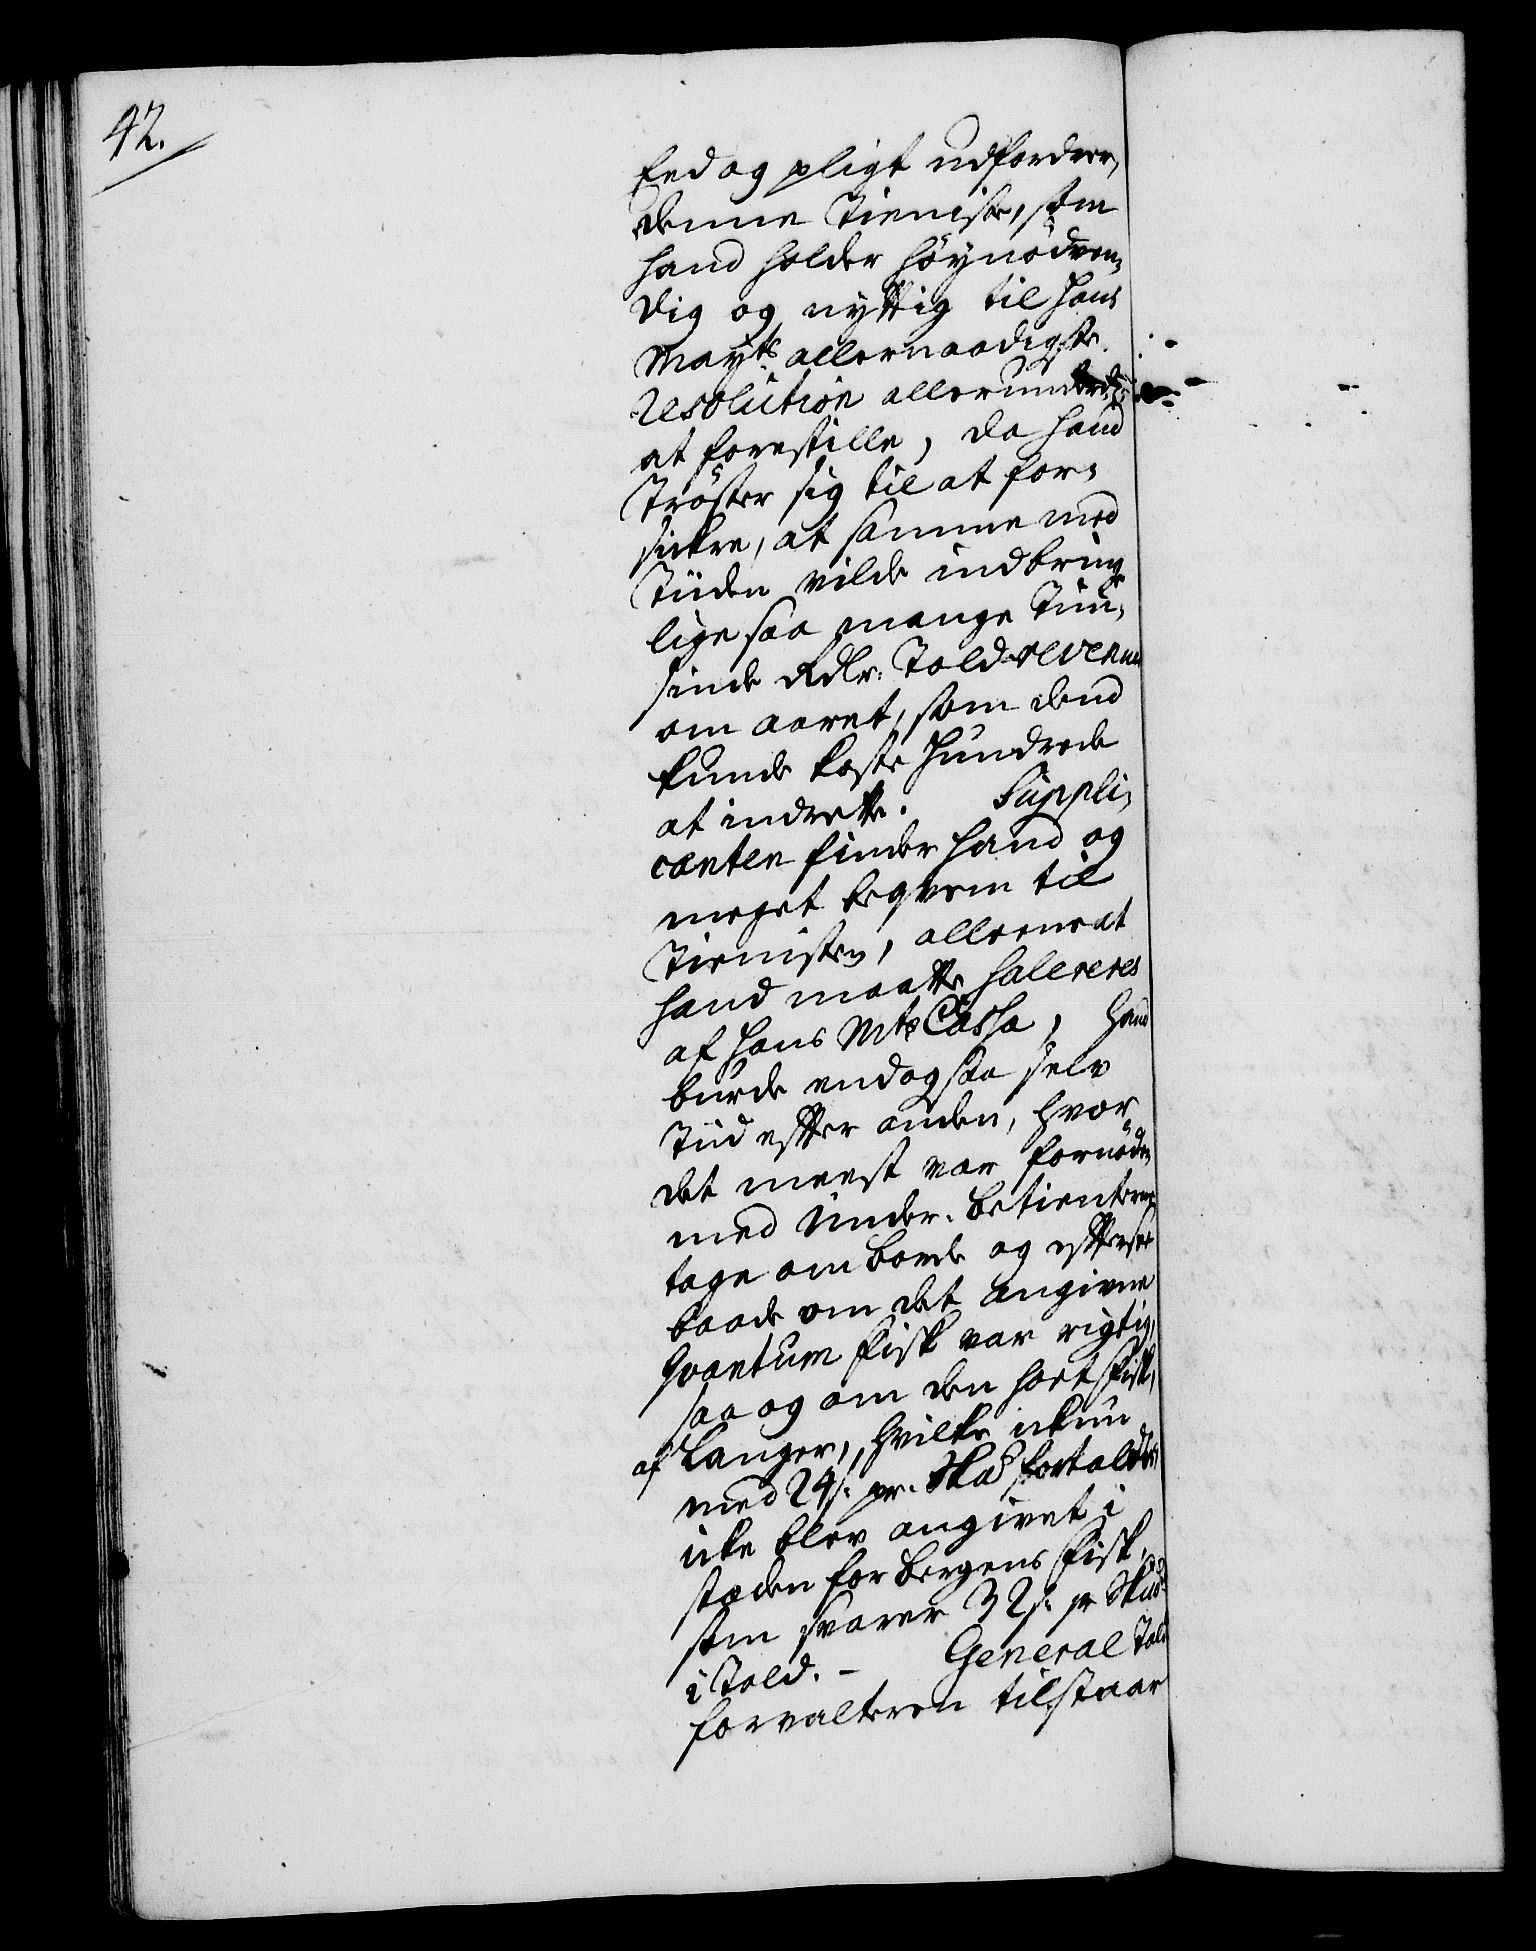 42.
Eed og pligt udfordrer,
denne Tieniste, som
hand holder höynödven-
dig og nyttig til Hans
Mayts allernaadigste
resolution allerunderd:
at forestille, da hand
Tröster sig til at for-
sikre, at samme med
Tiiden vilde indbringe
lige saa mange Tuu-
sinde Rdlr: Told revenue
om aaret, som dend
kunde koste Hundrede
at indrette. Suppli-
canten finder hand og
meget beqvem til
Tienisten, alleene at
hand maatte saleeres
af Hans Mts Cassa, hand
burde endogsaa selv
Tiid effter anden, hvor
det meest var fornöden
med Under-Betienterne
tage om borde og effterse
baade om det angivne
Qvantum Fisk var rigtig,
saa og om den sort Fisk,
af Langer, hvilke ickun
med 24 s: pr. Skd fortoldes,
icke blev angivet i
stæden for Bergens Fisk,
som svarer 32 s: pr Skd
i Told. - General Told
forvalteren tilstaar